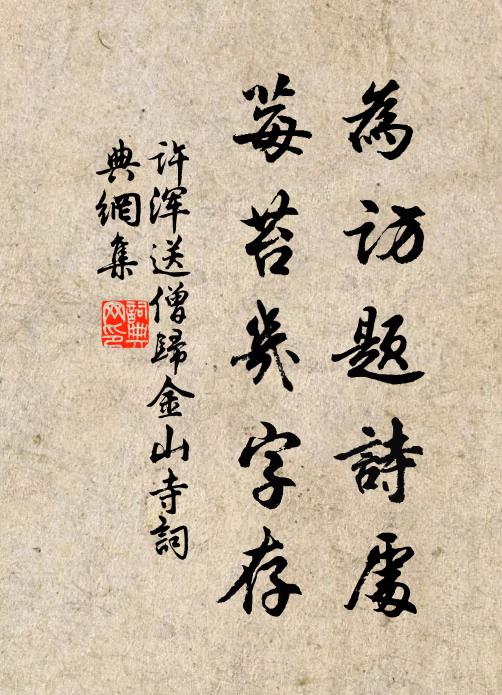 為訪題詩處
莓苔幾字存
許渾送僧歸金山寺詞
典網集
詞典網印